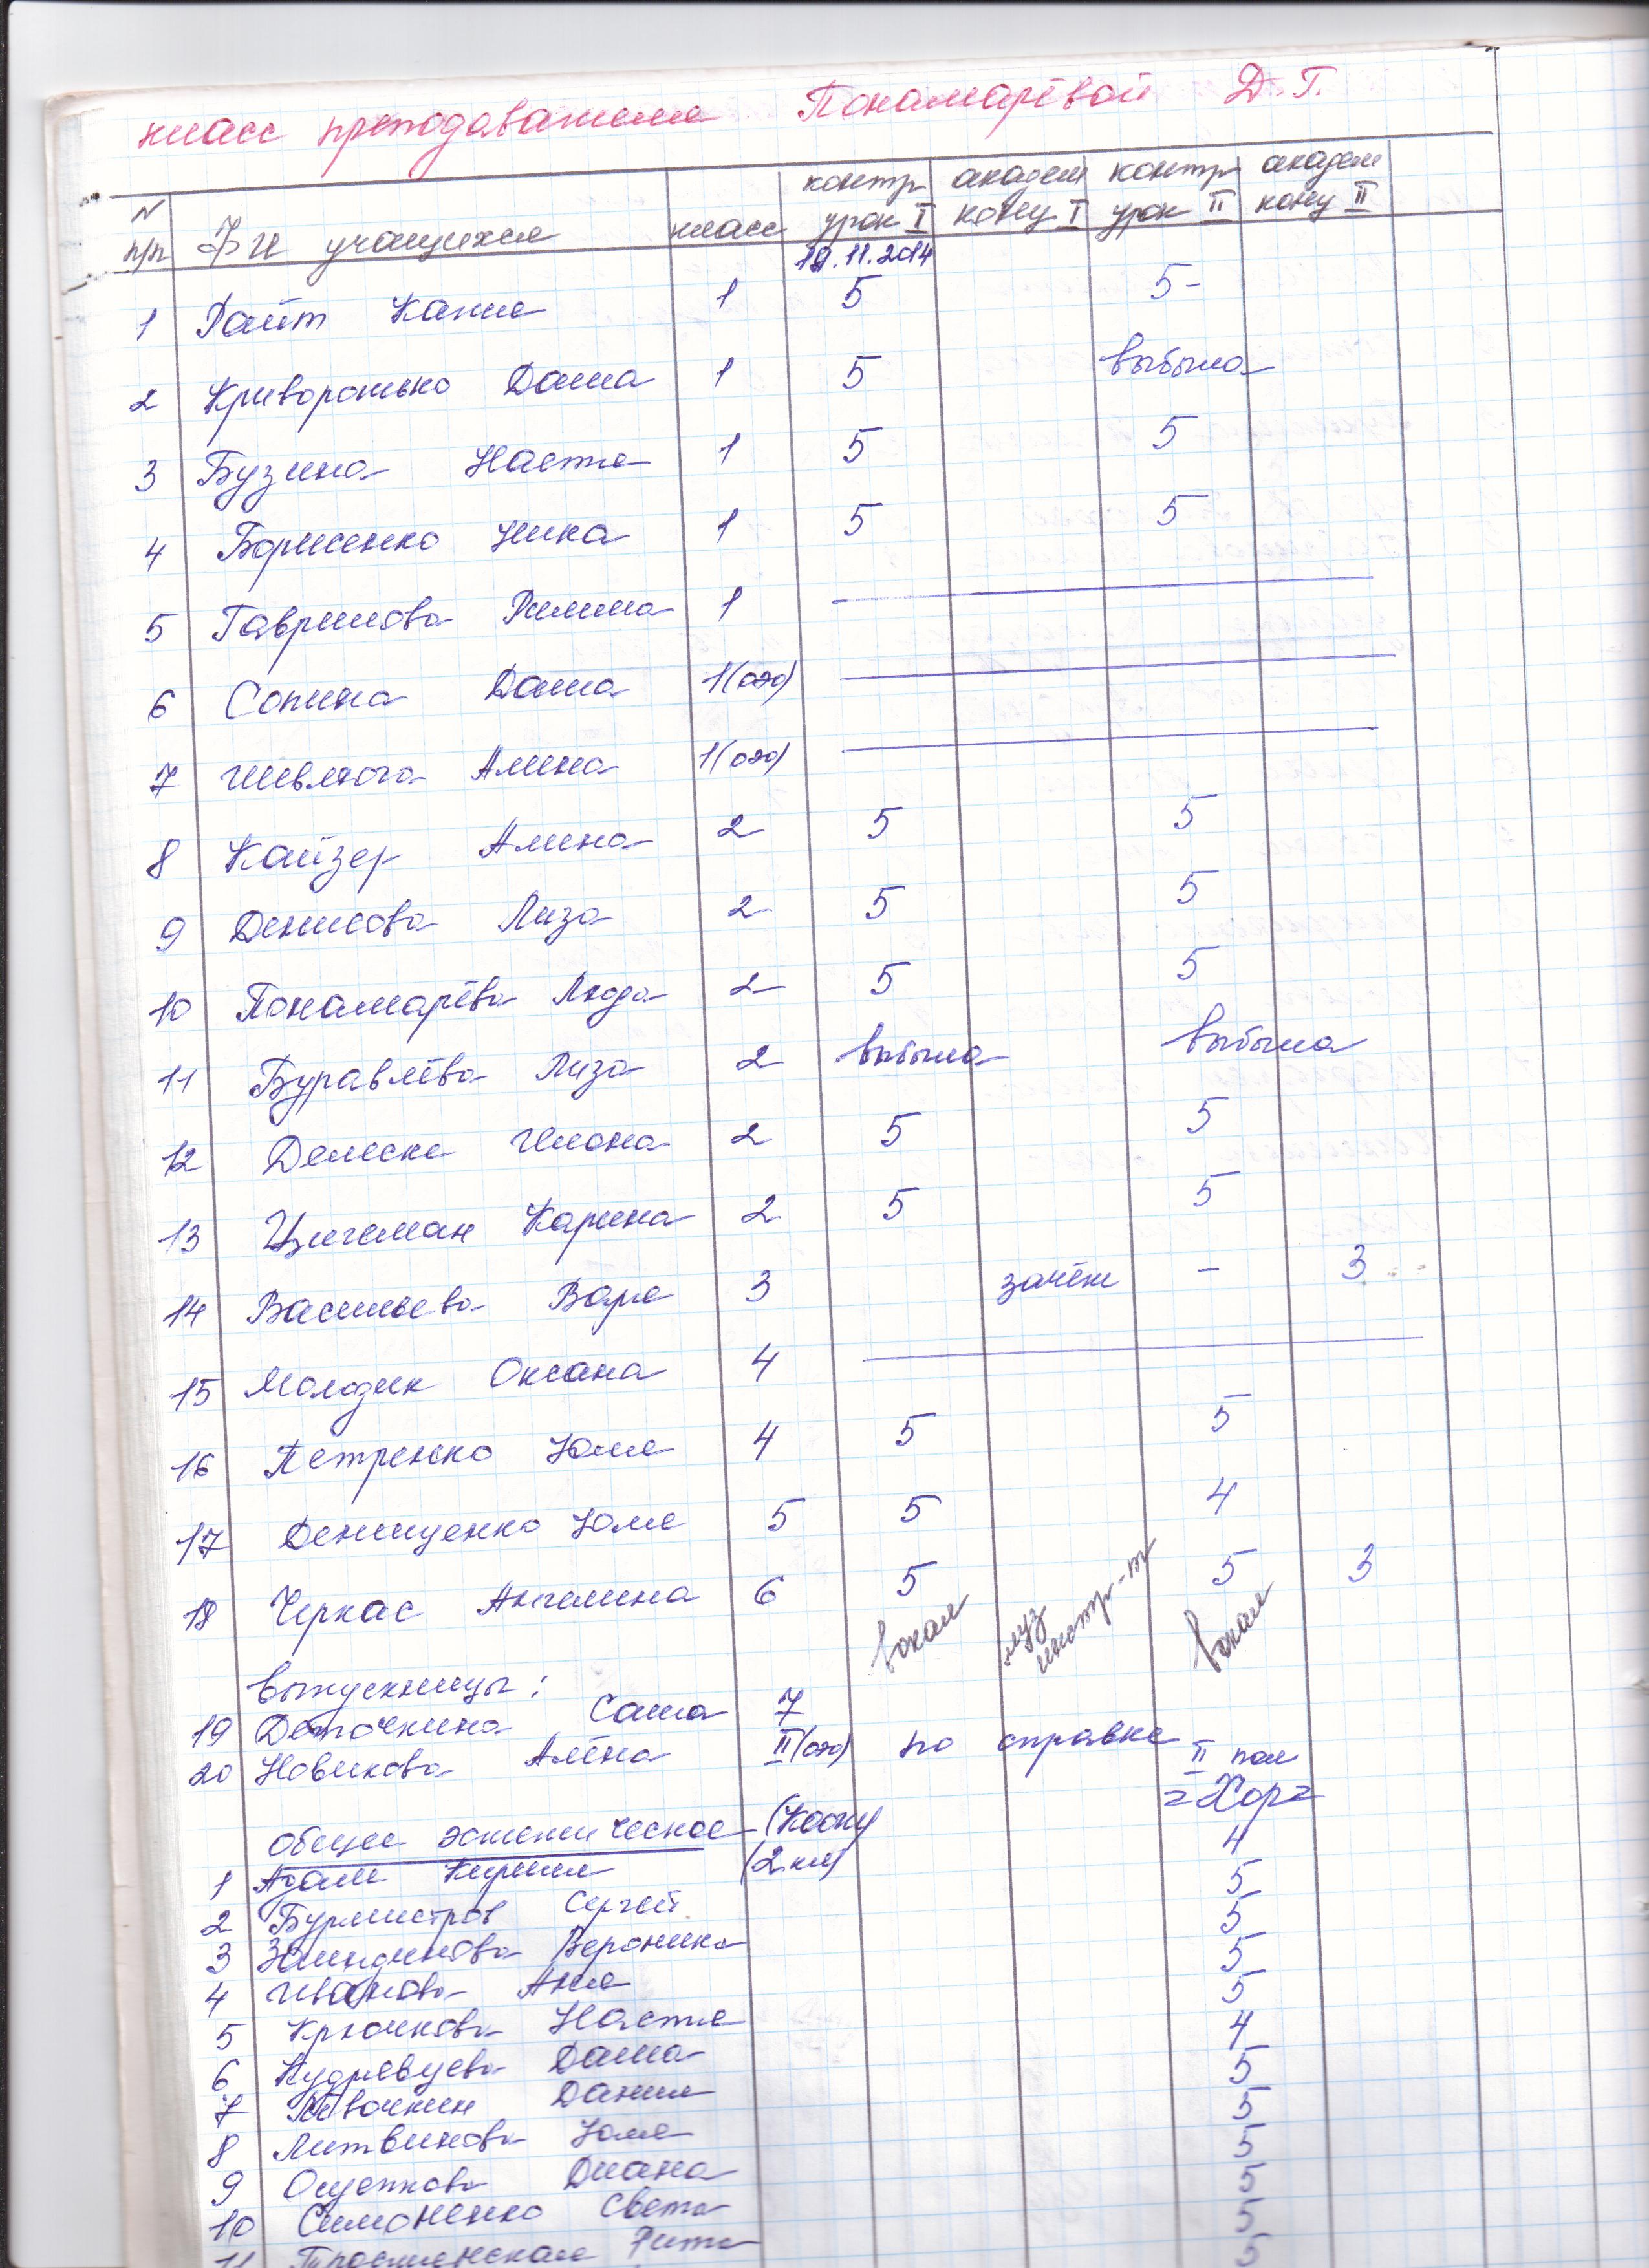 класс преподавателя Понамарёвой Д.Г.
N п/п Ф И учащихся класс контр урок I академ конц I контр урок II академ конц II
19.11.2014
1 Райт Катя 1 5 5-
2 Криворотько Даша 1 5 выбыла
3 Бузина Настя 1 5 5
4 Борисенко Ника 1 5 5
5 Гаврилова Полина 1
6 Сопина Даша 1(оэо)
7 Шевлюга Алина 1(оэо)
8 Кайзер Алина 2 5 5
9 Денисова Лиза 2 5 5
10 Понамарёва Люда 2 5 5
11 Буравлёва Лиза 2 выбыла выбыла
12 Делиске Илона 2 5 5
13 Цигеман Карина 2 5 5
14 Васильева Варя 3 зачёт - 3
15 Молодик Оксана 4
16 Петренко Юля 4 5 5
17 Денищенко Юля 5 5 4
18 Черкас Ангелина 6 5 5 3
вокал муз инстр-т вокал
выпускницы:
19 Деточкина Саша 7
20 Новикова Алёна II(оэо) по справке
II пол
Хор
общее эстетическое
1 Адам Кирилл (2 кл) 4
2 Бурмистров Сергей 5
3 Вероника 5
4 Иванова Аня 5
5 Крючкова Настя 5
6 Кудрявцева Даша 4
7 Данил 5
8 Литвинова Юля 5
9 Диана 5
10 Симоненко Света 5
11 Рита 5